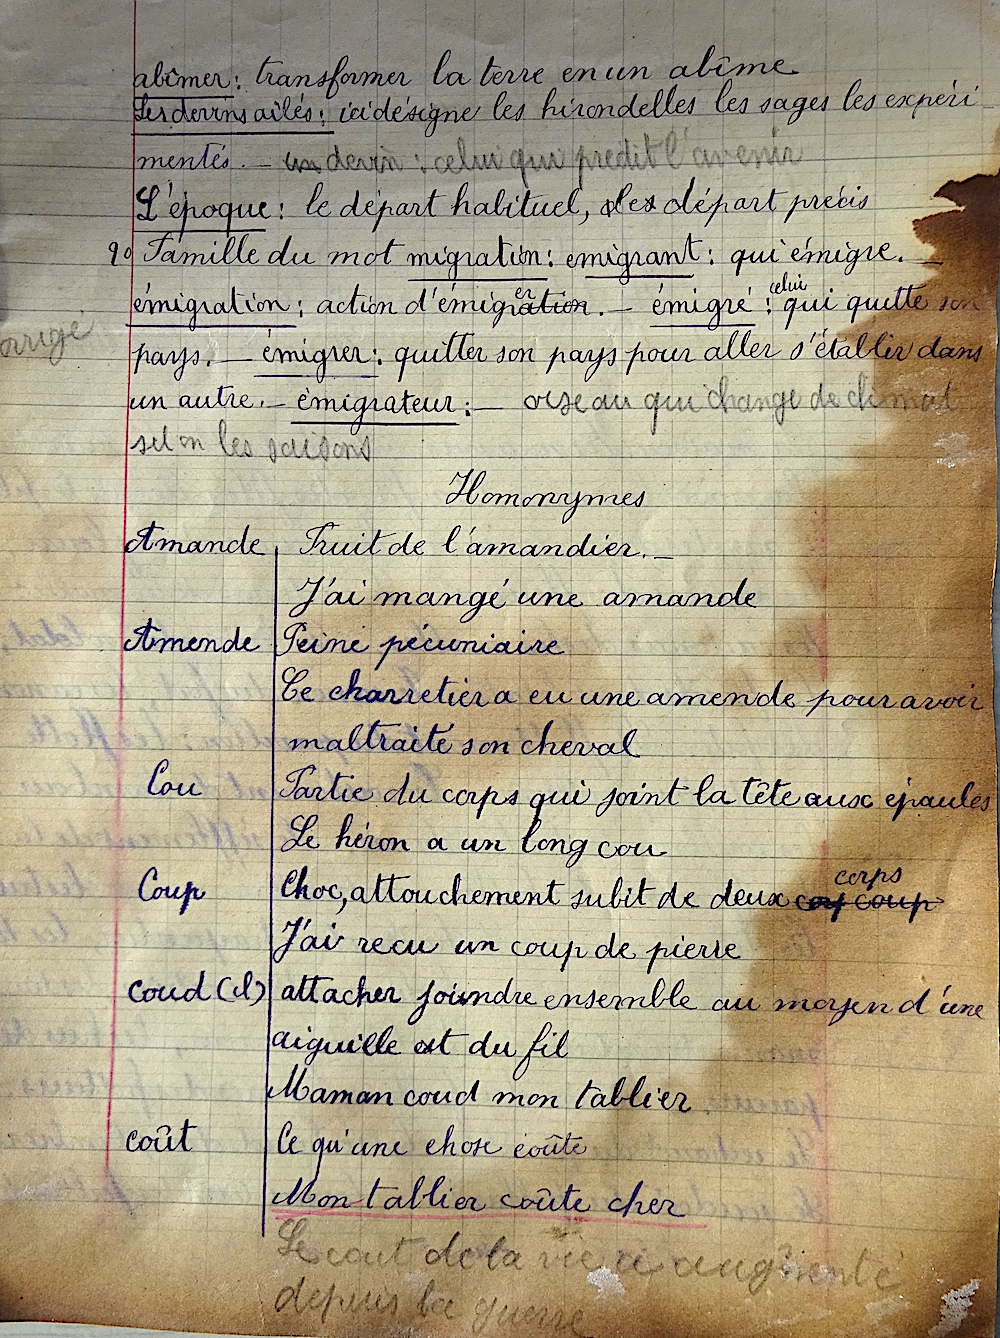 abîmer: transformer la terre en un abîme
Les devins ailés: ici désigne les hirondelles les sages les expéri
mentés. — un devin : celui qui prédit l'avenir
L'époque: le départ habituel, les départ précis
9° Famille du mot migration: emigrant: qui émigre. —
émigration: action d'émigration er. — émigré: celui qui quitte son
orrigé
pays. — émigrer: quitter son pays pour aller s'établir dans
un autre. — émigrateur: — oiseau qui change de climat
selon les saisons
Homonymes
Amande Fruit de l'amandier. —
J'ai mangé une amande
Amende Peine pécuniaire
Ce charretier a eu une amende pour avoir
maltraité son cheval
Cou Partie du corps qui joint la tête aux épaules
Le héron a un long cou
Coup Choc, attouchement subit de deux corp coup corps
J'ai recu un coup de pierre
coud (il) attacher joindre ensemble au moyen d'une
aiguille et du fil
Maman coud mon tablier
coût Ce qu'une chose coûte
Mon tablier coûte cher
Le cout de la vie a augmenté
depuis la guerre